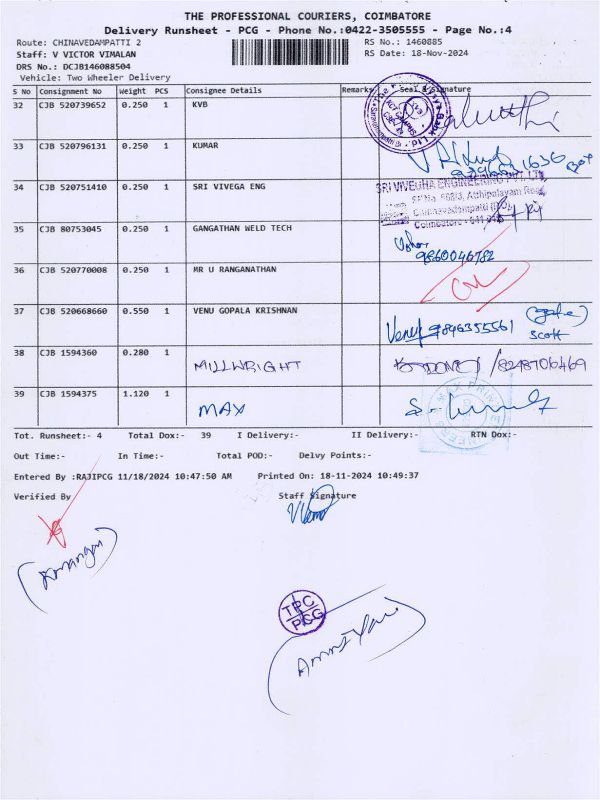 THE PROFESSIONAL COURIERS, COIMBATORE
Delivery Runsheet - PCG - Phone No.:0422-3505555 - Page No.:4
Route: CHINAVEDAMPATTI 2 RS No.: 1460885
Staff: V VICTOR VIMALAN RS Date: 18-Nov-2024
DRS No.: DCJB146088504
Vehicle: Two Wheeler Delivery
S No Consignment No Weight PCS Consignee Details Remarks Seal & Signature
32 CJB 520739652 0.250 1 KVB
33 CJB 520796131 0.250 1 KUMAR
34 CJB 520751410 0.250 1 SRI VIVEGA ENG
SRI VIVEGHA ENGINEERING PVT. LTD.
Athipalayam Road,
Chinnavedampatti (PO),
Coimbatore - 641 049
35 CJB 80753045 0.250 1 GANGATHAN WELD TECH
9860046782
36 CJB 520770008 0.250 1 MR U RANGANATHAN
37 CJB 520668660 0.550 1 VENU GOPALA KRISHNAN
Venu 9846355561
Scott
38 CJB 1594360 0.280 1 MILLWRIGHT /8248706469
39 CJB 1594375 1.120 1 MAX
Tot. Runsheet:- 4 Total Dox:- 39 I Delivery:- II Delivery:- RTN Dox:-
Out Time:- In Time:- Total POD:- Delvy Points:-
Entered By :RAJIPCG 11/18/2024 10:47:50 AM Printed On: 18-11-2024 10:49:37
Verified By Staff Signature
TPC
PCG